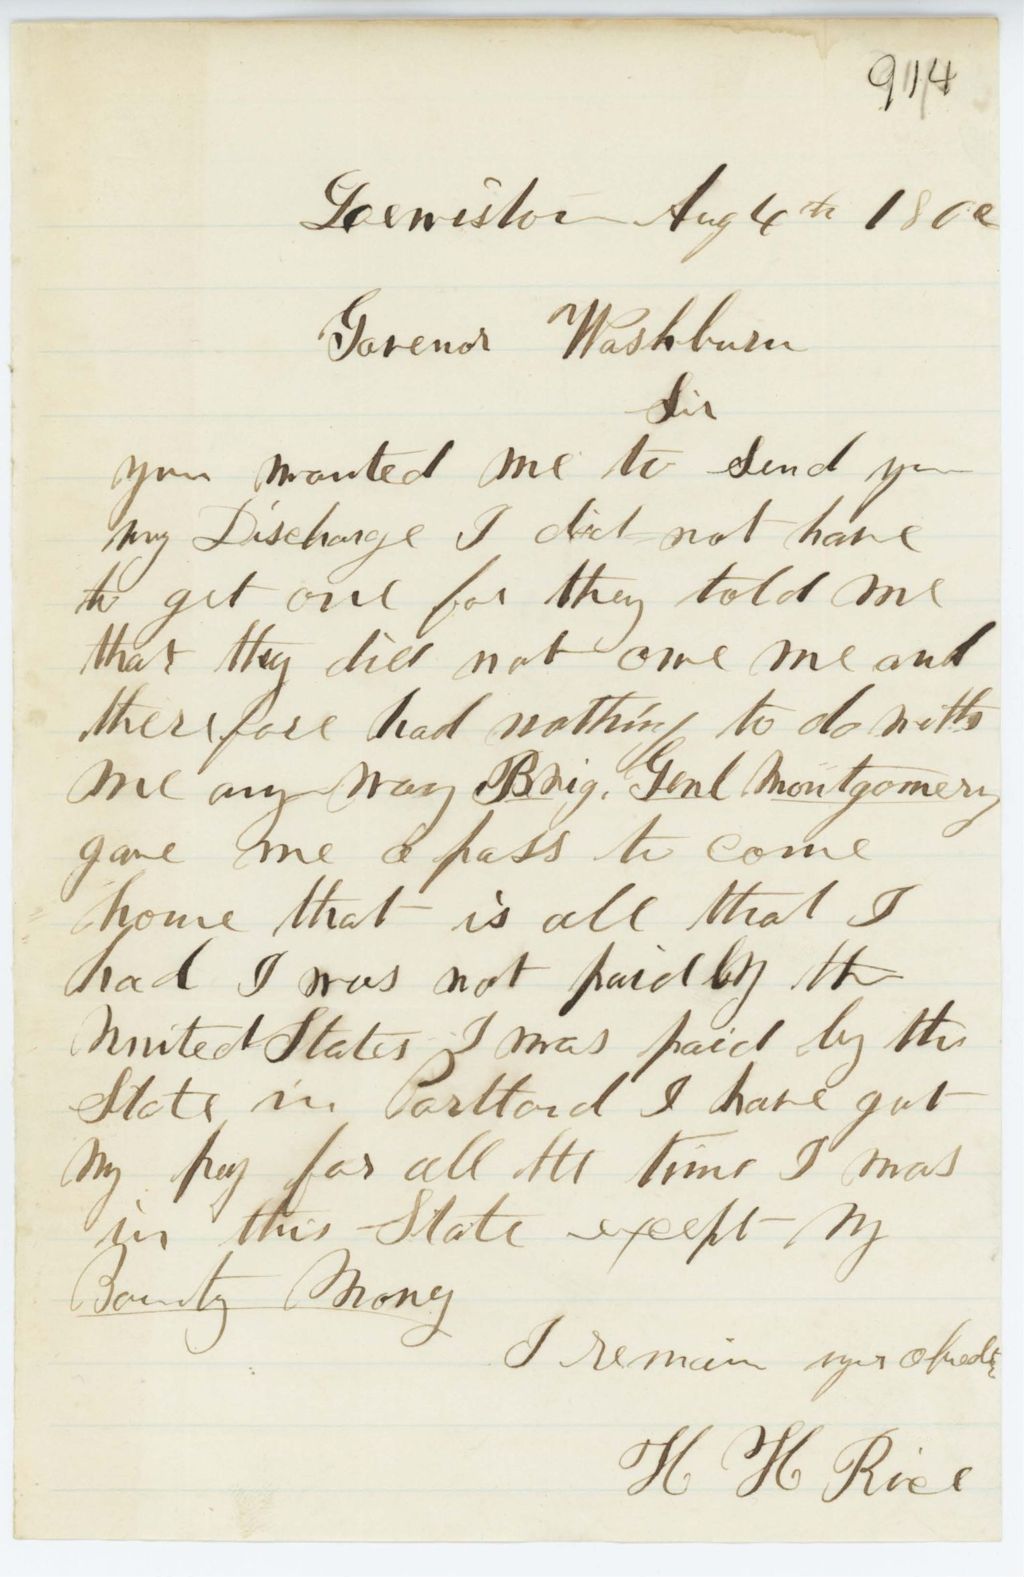 9114
Lewiston Aug 4th 186
Govenor Washburn
Sir
you wanted me to send you
my Discharge I did not have
to get one for they told me
that they did not owe me and
therefore had nothing to do with
me any way Brig. Genl Montgomery
gave me a pass to come
home that is all that I
had I was not paid by the
United States I was paid by the
State in Portland I have got
my pay for all the time I was
in this State except my
Bounty Mony
I remain your obedt
H H Rice